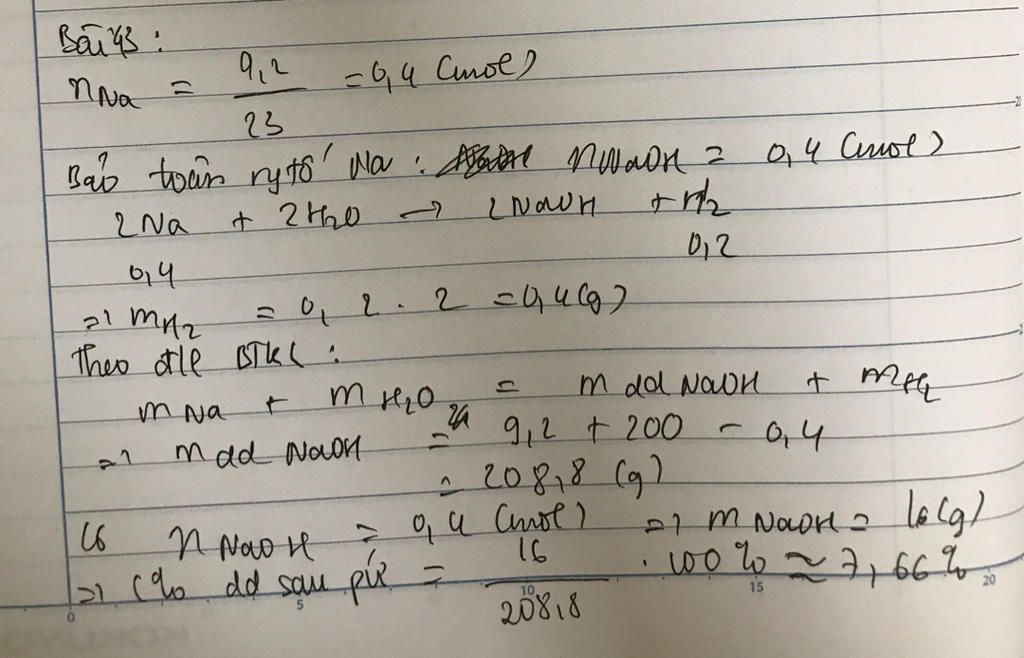 Bài 43:
nNa = 9,2/23 = 0,4 (mol)
Bảo toàn ngtố Na: nNaOH = 0,4 (mol)
2Na + 2H2O → 2NaOH + H2
0,4 0,2
=> mH2 = 0,2 . 2 = 0,4 (g)
Theo đl BTKL:
mNa + mH2O = mdd NaOH + mH2
=> mdd NaOH = 9,2 + 200 - 0,4
= 208,8 (g)
Có nNaOH = 0,4 (mol) => mNaOH = 16 (g)
=> C% dd sau pứ = 16/208,8 . 100% ≈ 7,66%
0 5 10 15 20